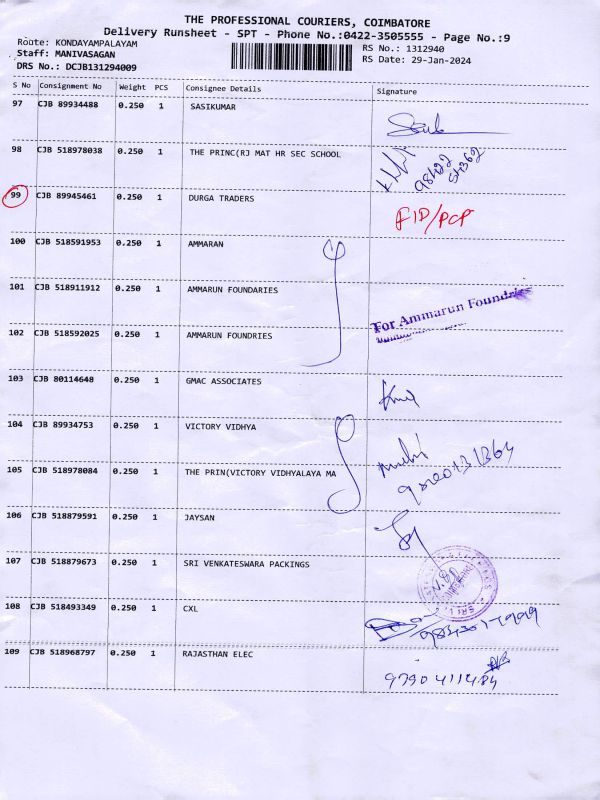 THE PROFESSIONAL COURIERS, COIMBATORE
Delivery Runsheet - SPT - Phone No.:0422-3505555 - Page No.:9
Route: KONDAYAMPALAYAM
Staff: MANIVASAGAN
DRS No.: DCJB131294009
RS No.: 1312940
RS Date: 29-Jan-2024
S No Consignment No Weight PCS Consignee Details Signature
97 CJB 89934488 0.250 1 SASIKUMAR
98 CJB 518978038 0.250 1 THE PRINC(RJ MAT HR SEC SCHOOL
99 CJB 89945461 0.250 1 DURGA TRADERS
100 CJB 518591953 0.250 1 AMMARAN
101 CJB 518911912 0.250 1 AMMARUN FOUNDARIES
For Ammarun Foundries
102 CJB 518592025 0.250 1 AMMARUN FOUNDRIES
103 CJB 80114648 0.250 1 GMAC ASSOCIATES
104 CJB 89934753 0.250 1 VICTORY VIDHYA
105 CJB 518978084 0.250 1 THE PRIN(VICTORY VIDHYALAYA MA
106 CJB 518879591 0.250 1 JAYSAN
107 CJB 518879673 0.250 1 SRI VENKATESWARA PACKINGS
108 CJB 518493349 0.250 1 CXL
109 CJB 518968797 0.250 1 RAJASTHAN ELEC
9790411484